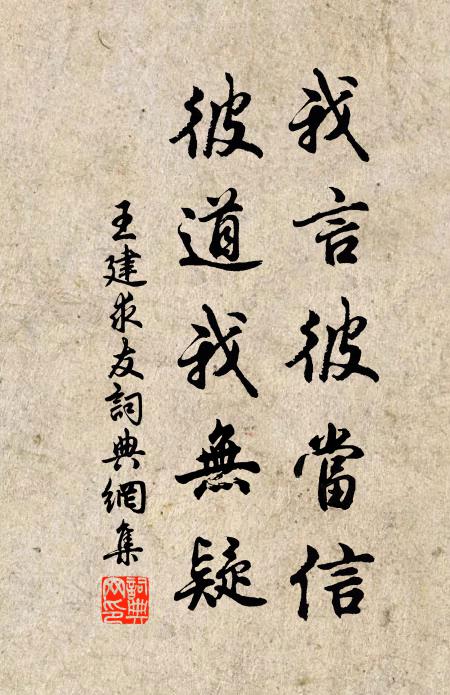 我言彼當信
彼道我無疑
王建求友詞典網集
詞典网印